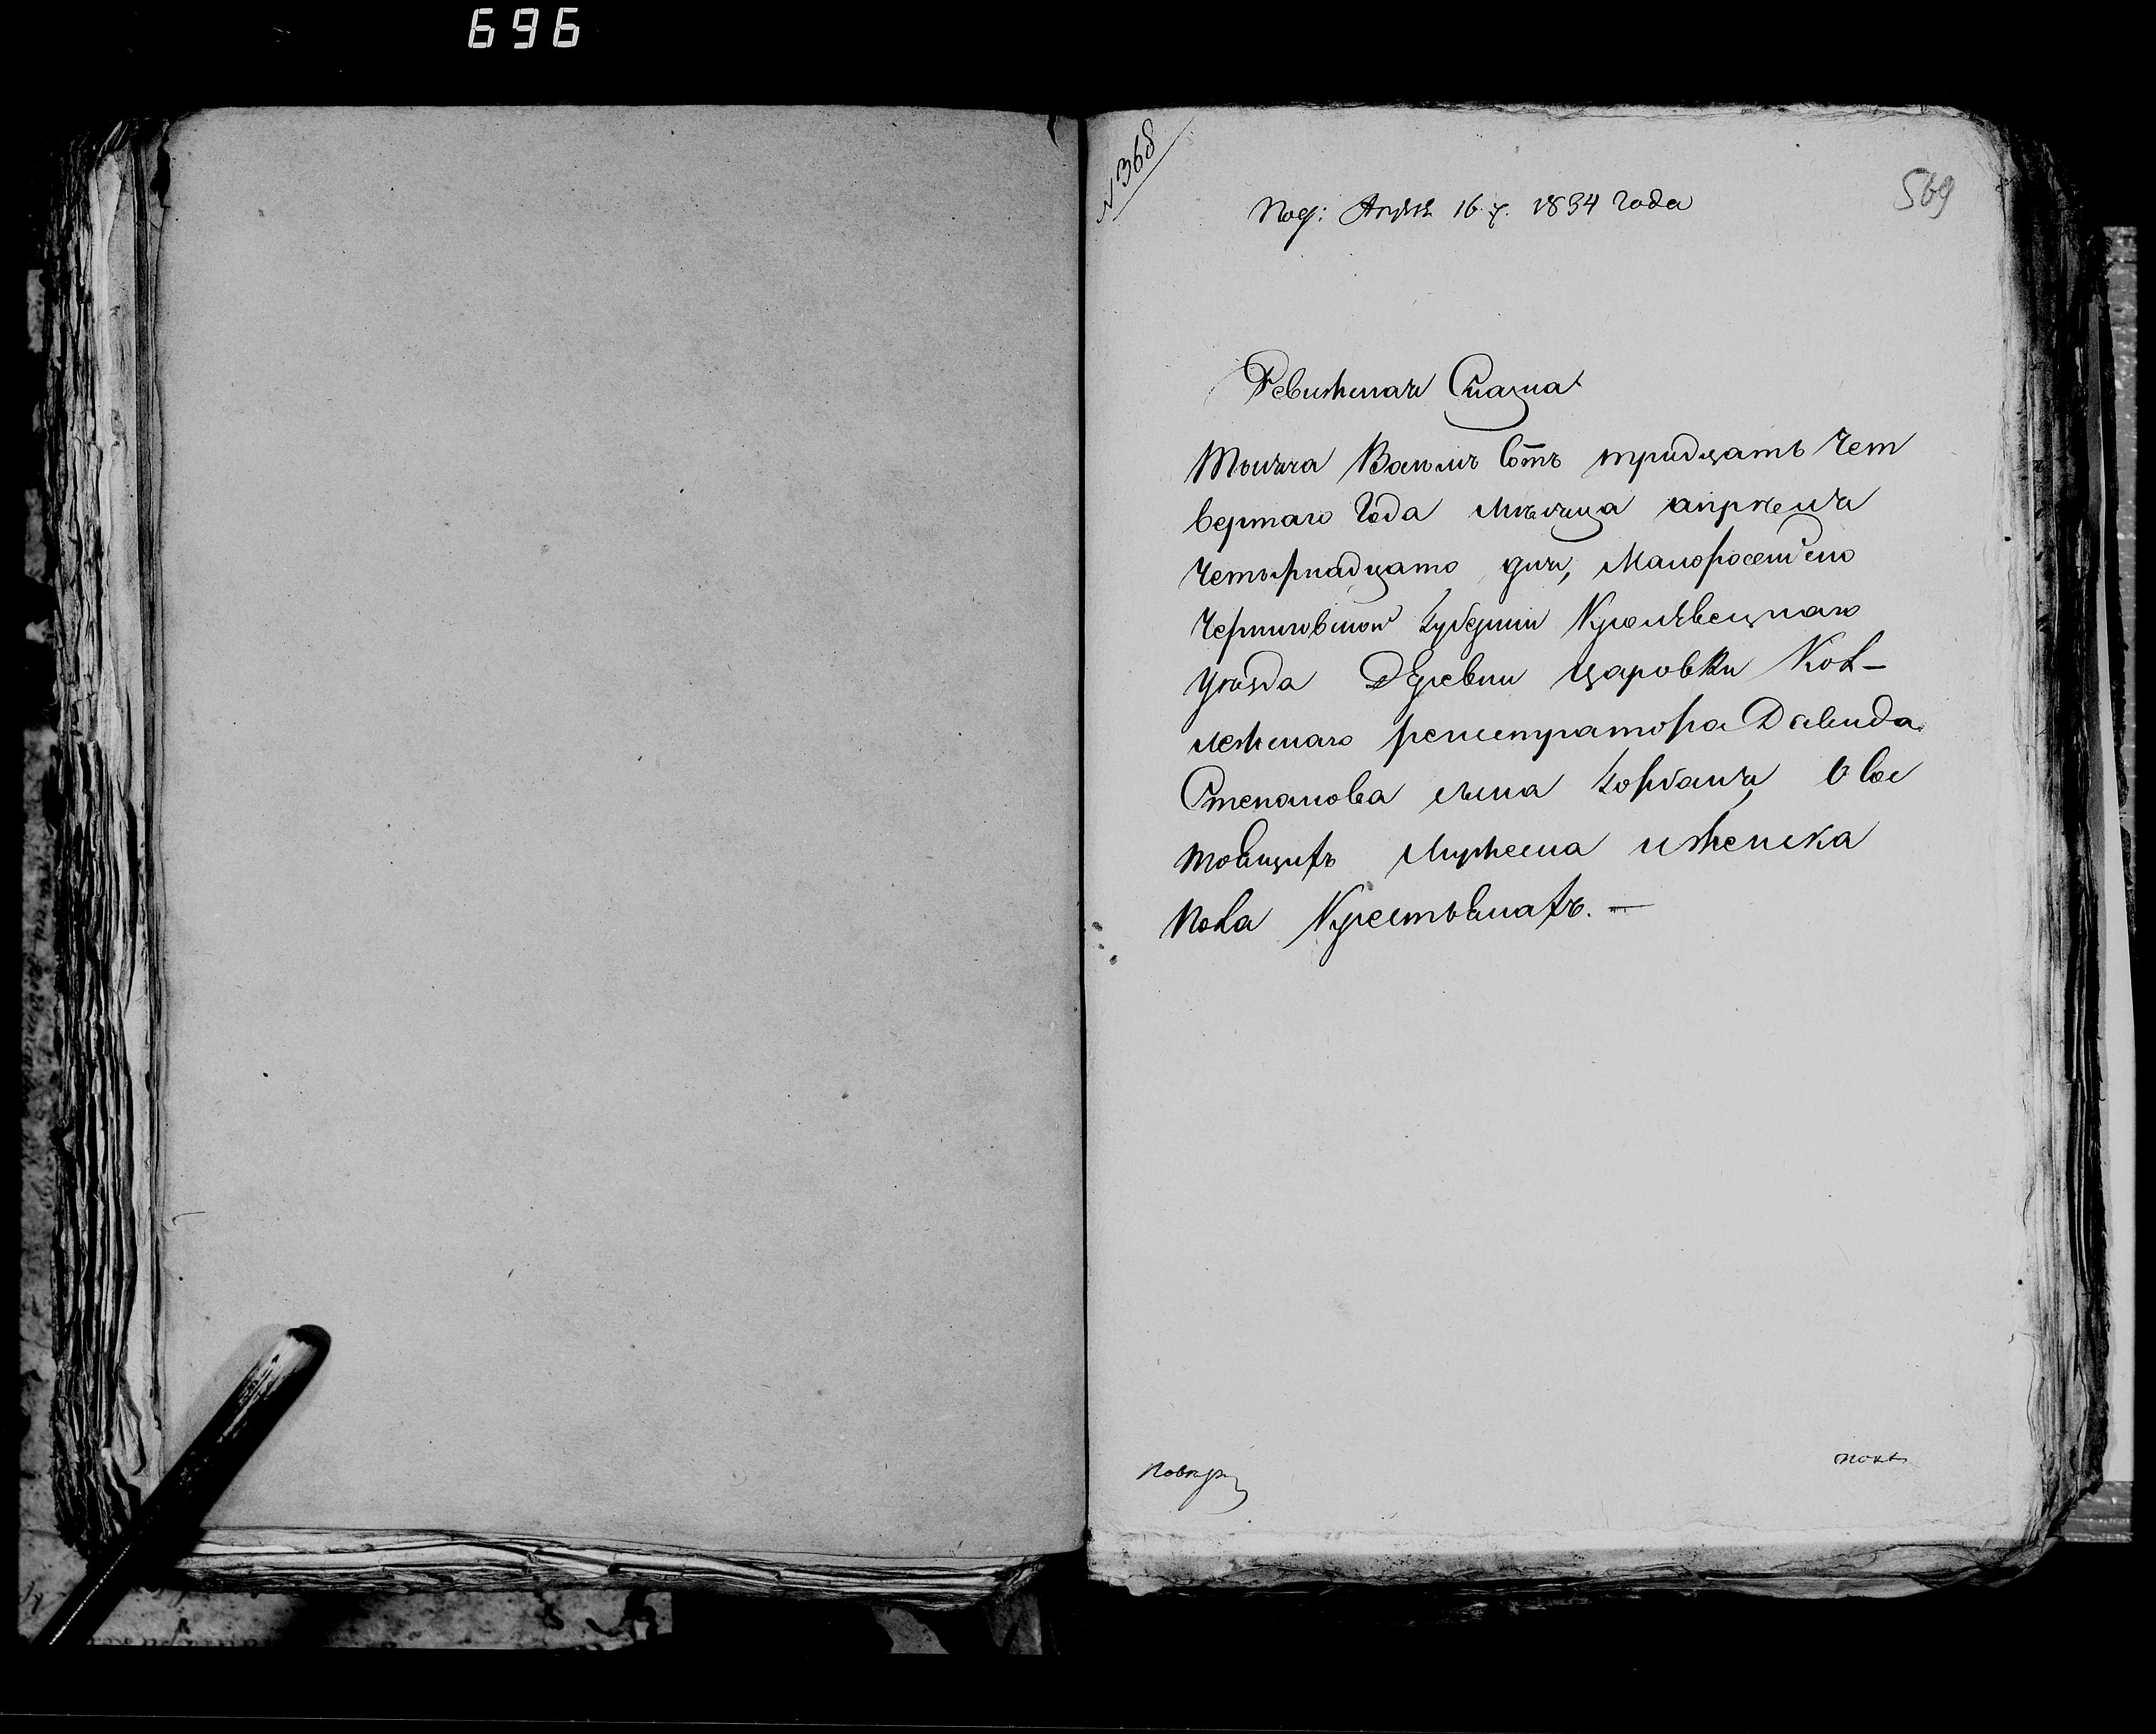 696
№ 368
569
Под: Апреля 16 д. 1834 года
Ревижская Сказка
Тысяча Восемь Сотъ тридцать Чет
вертаго Года Месяца апреля
Четырнадцато дня, Малоросейско
Черниговской Губернии Кролевецкаго
уезда Деревни царовки Кол-
лежскаго регистратора Давида
Степанова сына Горбаня, О Сос
тоящихъ Мужеска иженска
пола Крестьянахъ. —